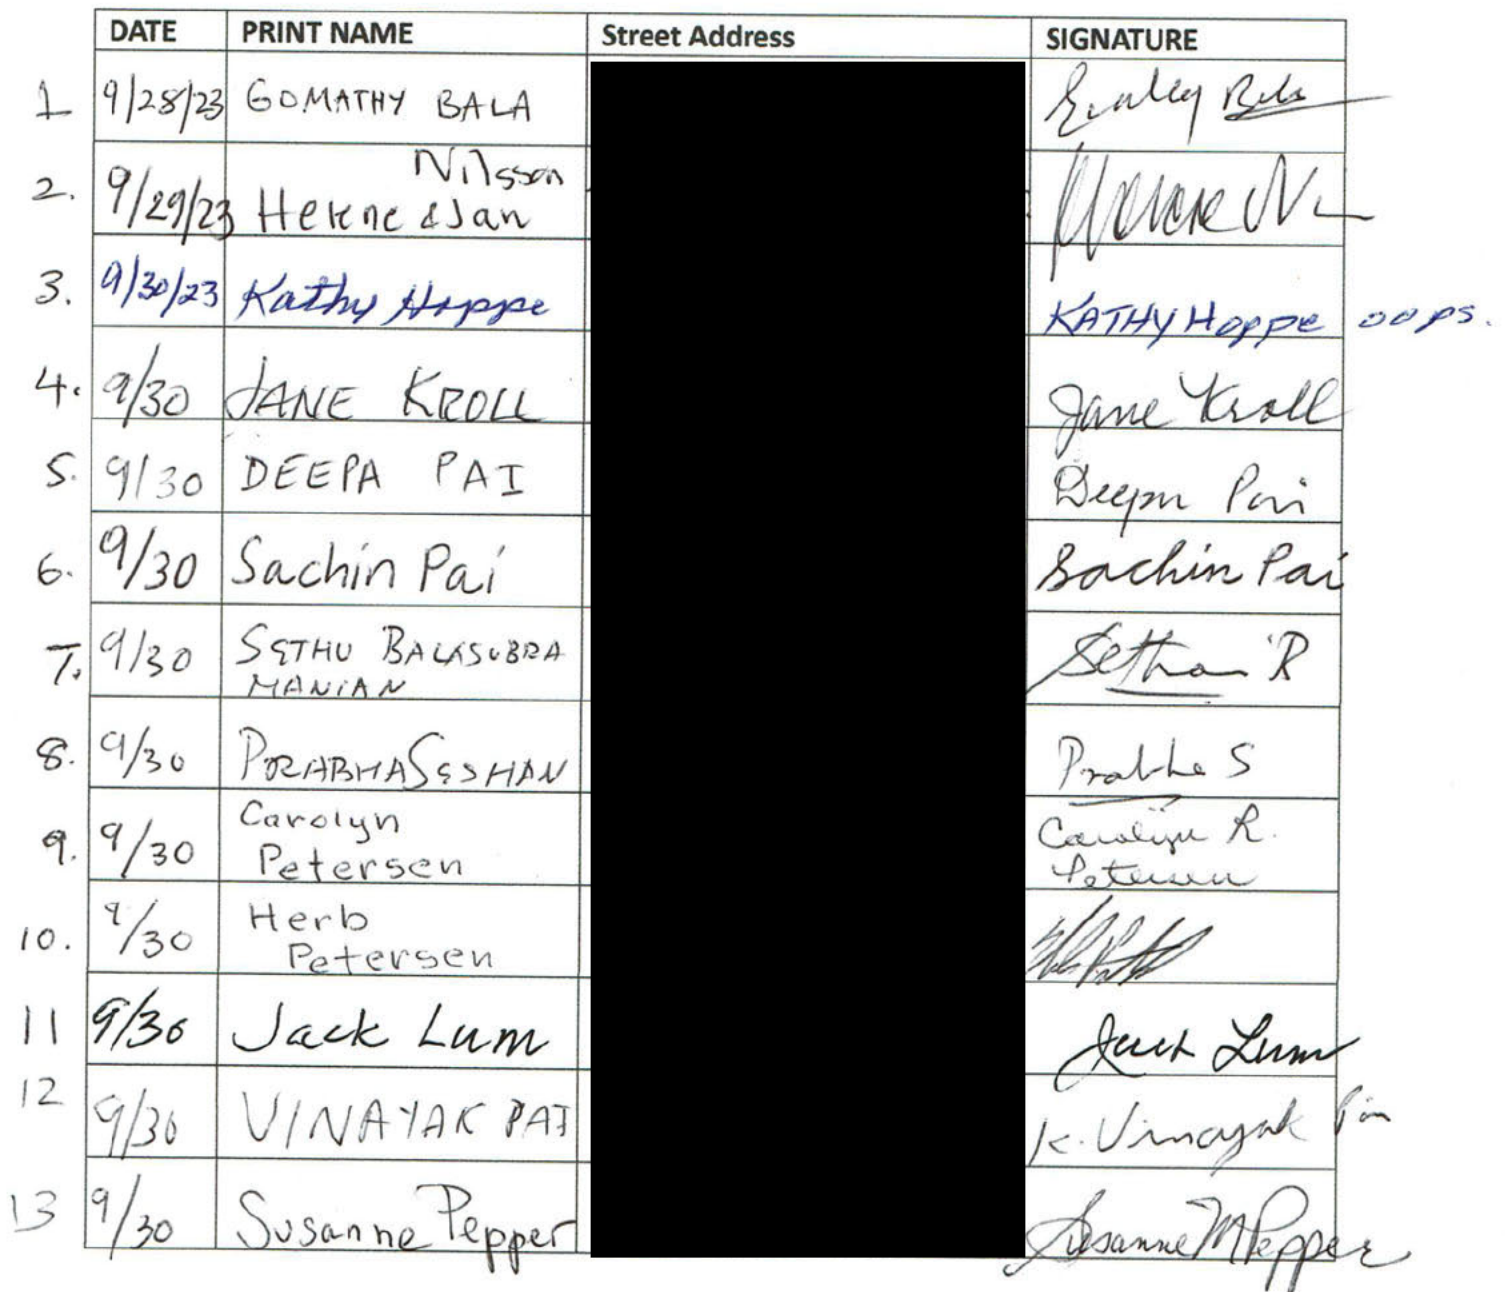 DATE PRINT NAME Street Address SIGNATURE
1 9/28/23 GOMATHY BALA
2. 9/29/23 Nilsson
Helene & Jan Helene N
3. 9/30/23 Kathy Hoppe KATHY Hoppe oops.
4. 9/30 JANE KROLL Jane Kroll
5. 9/30 DEEPA PAI Deepa Pai
6. 9/30 Sachin Pai Sachin Pai
7. 9/30 SETHU BALASUBRA
MANIAN
8. 9/30 PRABHA SESHAN Prabha S
9. 9/30 Carolyn Carolyn R.
Petersen Petersen
10. 9/30 Herb
Petersen
11 9/30 Jack Lum Jack Lum
12 9/30 VINAYAK PAI K. Vinayak Pai
13 9/30 Susanne Pepper Susanne M Pepper